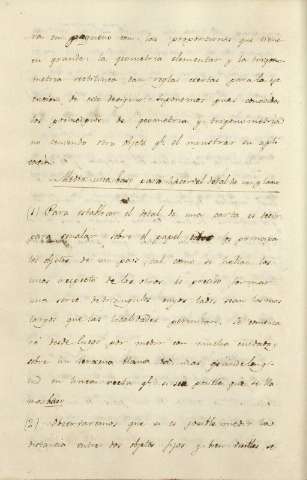 ra en pequeño con las proporciones que tiene
en grande: la geometria elementar y la trigono-
metria rectilinea dan reglas ciertas para la eje
cucion de este designio: suponemos pues conocidos
los principios de geometria y trigonometria
no teniendo otro objeto qe. el mostrar su apli
cacion.
Medir una base para hacer el detal de un plano
(1) Para establecer el total de una carta es decir
para señalar sobre el papel los principa
les objetos de un pais, tal como se hallan los
unos respecto de los otros, es preciso formar
una serie de triangulos cuyos lados sean los mas
largos que las localidades permitan. Se comenza
rá desde luego por medir con mucho cuidado,
sobre un terreno llano la mas grande longi
tud en linea recta qe. sea posible, que se lla
ma base
(2) Observaremos que si es posible medir la
distancia entre dos objetos fijos y bien visibles se